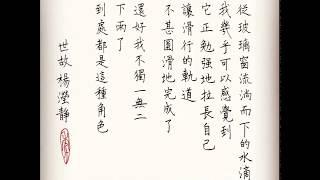 從玻璃窗流淌而下的水滴
我幾乎可以感覺到
它正勉强地拉長自己
讓滑行的軌道
不甚圓滑地完成了
還好我不獨一無二
下雨了
到處都是這種角色
世故 楊瀅靜